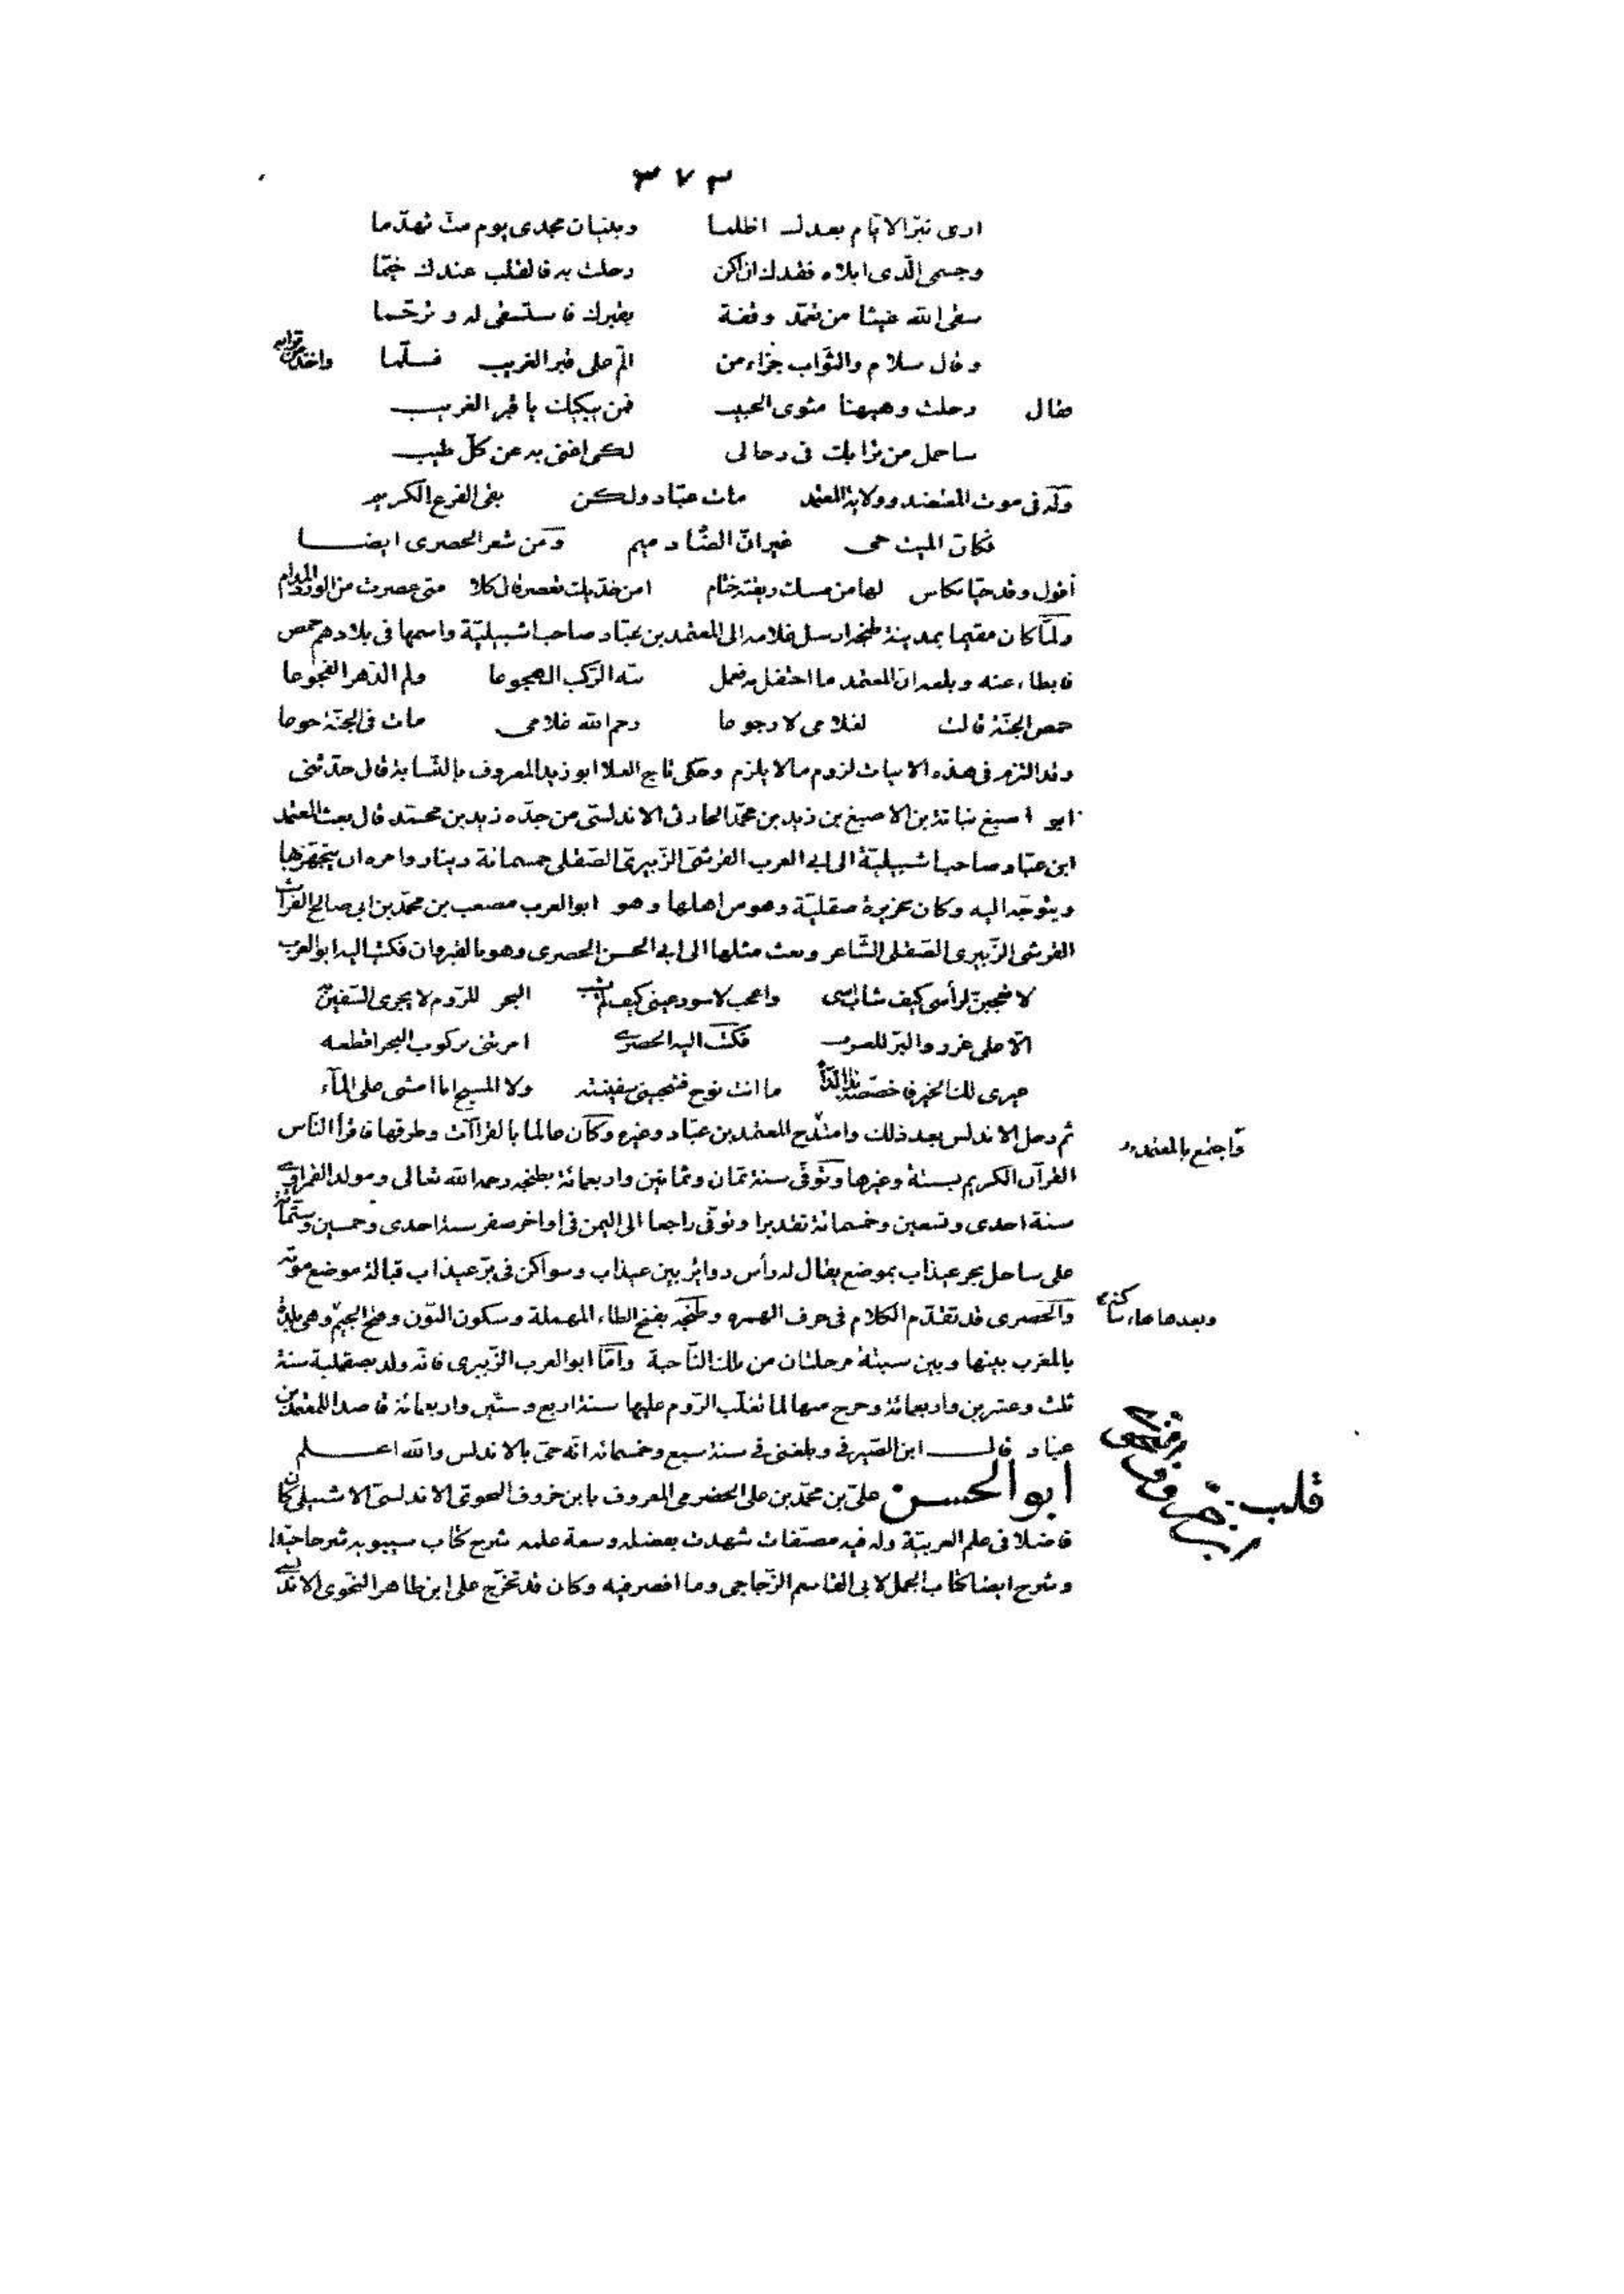 ٣٧٣
ارى نيّر الايّام بعدك اظلما وبنيان مجدى يوم متّ تهدّما
وجسمى الّذى ابلاه فقدك ان اكن رحلت به فالقلب عندك خيّما
سقى الله غيثا من تعمّد وقفة بقبرك فاستسقى له وترحّما
وقال سلام والثّواب جزاء من المّ على قبر الغريب فسلّما واخذ من ترابه
فقال رحلت وهيهنا مثوى الحبيب فمن يبكيك يا قبر الغريب
ساحمل من ترابك فى رحالى لكى اغنى به عن كلّ طيب
وله فى موت المعتضد وولاية المعتمد مات عبّاد ولكن بقى الفرع الكريم
فكان الميت حى غير انّ الضّاد ميم ومن شعر الحصرى ايضا
أقول وقد حيّا بكاس لها من مسك ريقته ختام امن خدّيك تعصر قال كلا متى عصرت من الورد المدام
ولمّا كان مقيما بمدينة طنجه ارسل غلامه الى المعتمد بن عبّاد صاحب اشبيليّة واسمها فى بلادهم حمص
فابطاء عنه وبلغه ان المعتمد ما احتفل به فعمل نبّه الرّكب الهجوعا ولم الدّهر الفجوعا
حمص الجنّة قالت لغلامى لا رجوعا رحم الله غلامى مات فى الجنّة جوعا
وقد التزم فى هذه الابيات لزوم ما لا يلزم وحكى تاج العلا ابو زيد المعروف بالنّسابة قال حدّثنى
ابو اصبغ نباتة بن الاصبغ بن زيد بن محمّد الحارثى الاندلسّى من جدّه زيد بن محمّد قال بعث المعتمد
ابن عبّاد صاحب اشبيليّة الى ابى العرب القرشىّ الزّبيرىّ الصّقلى خمسمائة دينار وامره ان يتجهّز بها
ويتوجّه اليه وكان بجزيرة صقليّة وهو من اهلها وهو ابو العرب مصعب بن محمّد بن ابى صالح الفرات
القرشى الزّبيرى الصّقلى الشّاعر وبعث مثلها الى ابى الحسن الحصرى وهو بالقيروان فكتب اليه ابو العرب
لا تعجبنّ لرأسى كيف شاب اسى واعجب لاسود عينى كيف لم يشب البحر للرّوم لا يجرى السّفين به
الّا على غرر والبرّ للعرب فكتب اليه الحصرى امرتنى بركوب البحر اقطعه
غيرى لك الخير فاخصصه بذا الدّاء ما انت نوح فتنجينى سفينته ولا المسيح انا امشى على المآء
ثم دخل الاندلس بعد ذلك وامتدح المعتمد بن عبّاد وغيره وكان عالما بالقرآات وطرقها فاقرأ النّاس
واجتمع بالمعتمد
القرآن الكريم بسبتة وغيرها وتوفّى سنة ثمان وثمانين واربعمائة بطنجه رحمه الله تعالى ومولد
سنة احدى وتسعين وخمسمائة تقديرا وتوفّى راجعا الى اليمن فى اواخر صفر سنة احدى وخمسين وستّمائة
على ساحل بحر عيذاب بموضع يقال له رأس دوائر بين عيذاب وسواكن فى برّ عيذاب قبالة موضع موته
والحصرى قد تقدّم الكلام فى حرف الهمزه وطنجه بفتح الطاء المهملة وسكون النّون وفتح الجيم وهى بلدة
وبعدها هاء ساكنه
بالمغرب بينها وبين سبتة مرحلتان من تلك النّاحية وامّا ابو العرب الزّبيرى فانّه ولد بصقلية سنة
ثلث وعشرين واربعمائة وخرج منها لما تغلّب الرّوم عليها سنة اربع وستّين واربعمائة قاصدا للمعتمد بن
عبّاد قال ابن الصّيرفى وبلغنى فى سنة سبع وخمسمائه انّه حىّ بالاندلس والله اعلم
ابو الحسن علىّ بن محمّد بن على الحضرمى المعروف بابن خروف النحوىّ الاندلسىّ الاشبيلى كان
فاضلا فى علم العربيّة وله فيه مصنّفات شهدت بفضله وسعة علمه شرح كتاب سيبويه شرحا جيّدا
وشرح ايضا كتاب الجمل لابى القاسم الزّجاجى وما اقصر فيه وكان قد تخرّج على ابن طاهر النّحوى الاندلسى
قلب